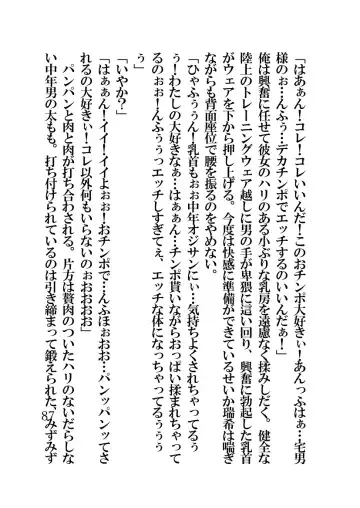 「はあぁん！コレ！コレいいんだ！このおチンポ大好きぃ！あんっふはぁ…宅男
様のぉ…んふぅ…デカチンポでエッチするのいいんだぁ！」
俺は興奮に任せて彼女のハリのある小ぶりな乳房を遠慮なく揉みしだく。健全な
陸上のトレーニングウェア越しに男の手が卑猥に這い回り、興奮に勃起した乳首
がウェアを下から押し上げる。今度は快感に準備ができているせいか瑞希は喘ぎ
ながらも背面座位で腰を振るのをやめない。
「ひゃふぅぅん！乳首もぉぉ中年オジサンにぃ…気持ちよくされちゃってるぅ
ぅ！わたしの大好きなぁ…はぁぁん…チンポ貰いながらおっぱい揉まれちゃって
るのぉぉ！んふぅぅっエッチしすぎてぇ、エッチな体になっちゃってるぅぅぅ
ぅ」
「いやか？」
「はぁぁん！イイ！イイよぉぉ！おチンポで…んふほぉおお…パンッパンッてさ
れるの大好きぃ！コレ以外何もいらないのぉおおおお」
パンパンと肉と肉が打ち合わされる。片方は贅肉のついたハリのないだらしな
い中年男の太もも。打ち付けられているのは引き締まって鍛えられた、みずみず
87